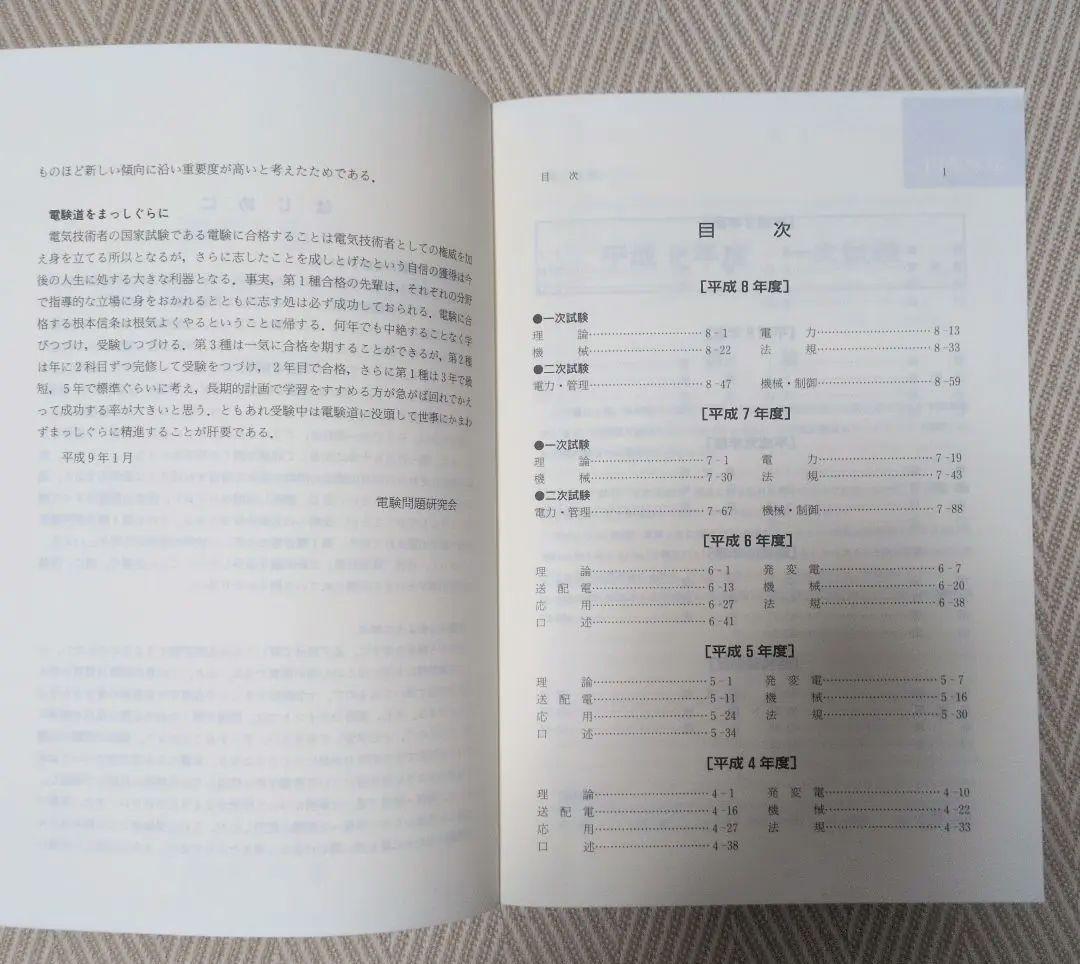 ものほど新しい傾向に沿い重要度が高いと考えたためである．
電験道をまっしぐらに
電気技術者の国家試験である電験に合格することは電気技術者としての権威を加
え身を立てる所以となるが，さらに志したことを成しとげたという自信の獲得は今
後の人生に処する大きな利器となる．事実，第1種合格の先輩は，それぞれの分野
で指導的な立場に身をおかれるとともに志す処は必ず成功しておられる．電験に合
格する根本信条は根気よくやるということに帰する．何年でも中絶することなく学
びつづけ，受験しつづける．第3種は一気に合格を期することができるが，第2種
は年に2科目ずつ完修して受験をつづけ，2年目で合格，さらに第1種は3年で最
短，5年で標準ぐらいに考え，長期的計画で学習をすすめる方が急がば回れでかえ
って成功する率が大きいと思う．ともあれ受験中は電験道に没頭して世事にかまわ
ずまっしぐらに精進することが肝要である．
平成9年1月
電験問題研究会
目 次 1
目 次
［平成8年度］
●一次試験
理 論……8-1 電 力……8-13
機 械……8-22 法 規……8-33
●二次試験
電力・管理……8-47 機械・制御……8-59
［平成7年度］
●一次試験
理 論……7-1 電 力……7-19
機 械……7-30 法 規……7-43
●二次試験
電力・管理……7-67 機械・制御……7-88
［平成6年度］
理 論……6-1 発 変 電……6-7
送 配 電……6-13 機 械……6-20
応 用……6-27 法 規……6-38
口 述……6-41
［平成5年度］
理 論……5-1 発 変 電……5-7
送 配 電……5-11 機 械……5-16
応 用……5-24 法 規……5-30
口 述……5-34
［平成4年度］
理 論……4-1 発 変 電……4-10
送 配 電……4-16 機 械……4-22
応 用……4-27 法 規……4-33
口 述……4-38